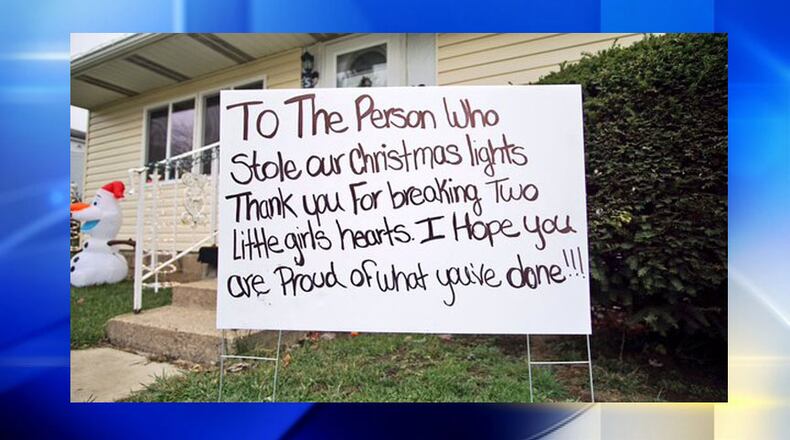 To The Person Who
Stole our Christmas lights
Thank you For breaking Two
Little girls hearts. I Hope you
are Proud of what you've done!!!